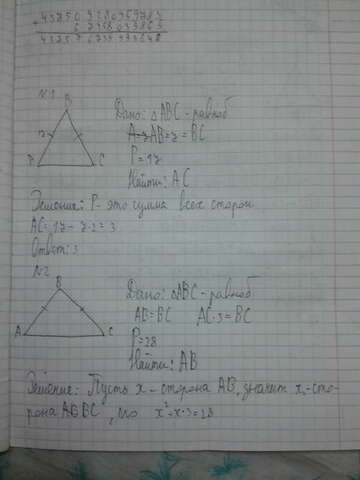 N1
B
7
A
C
Дано: △ABC - равноб
AB=7=BC
P=17
Найти: AC
Решение: P - это сумма всех сторон
AC=17-7·2=3
Ответ: 3
N2
B
A
C
Дано: △ABC - равноб
AB=BC AC·3=BC
P=28
Найти: AB
Решение: Пусть x - сторона AB, значит x-сто-
рона BC, то x²+x·3=28